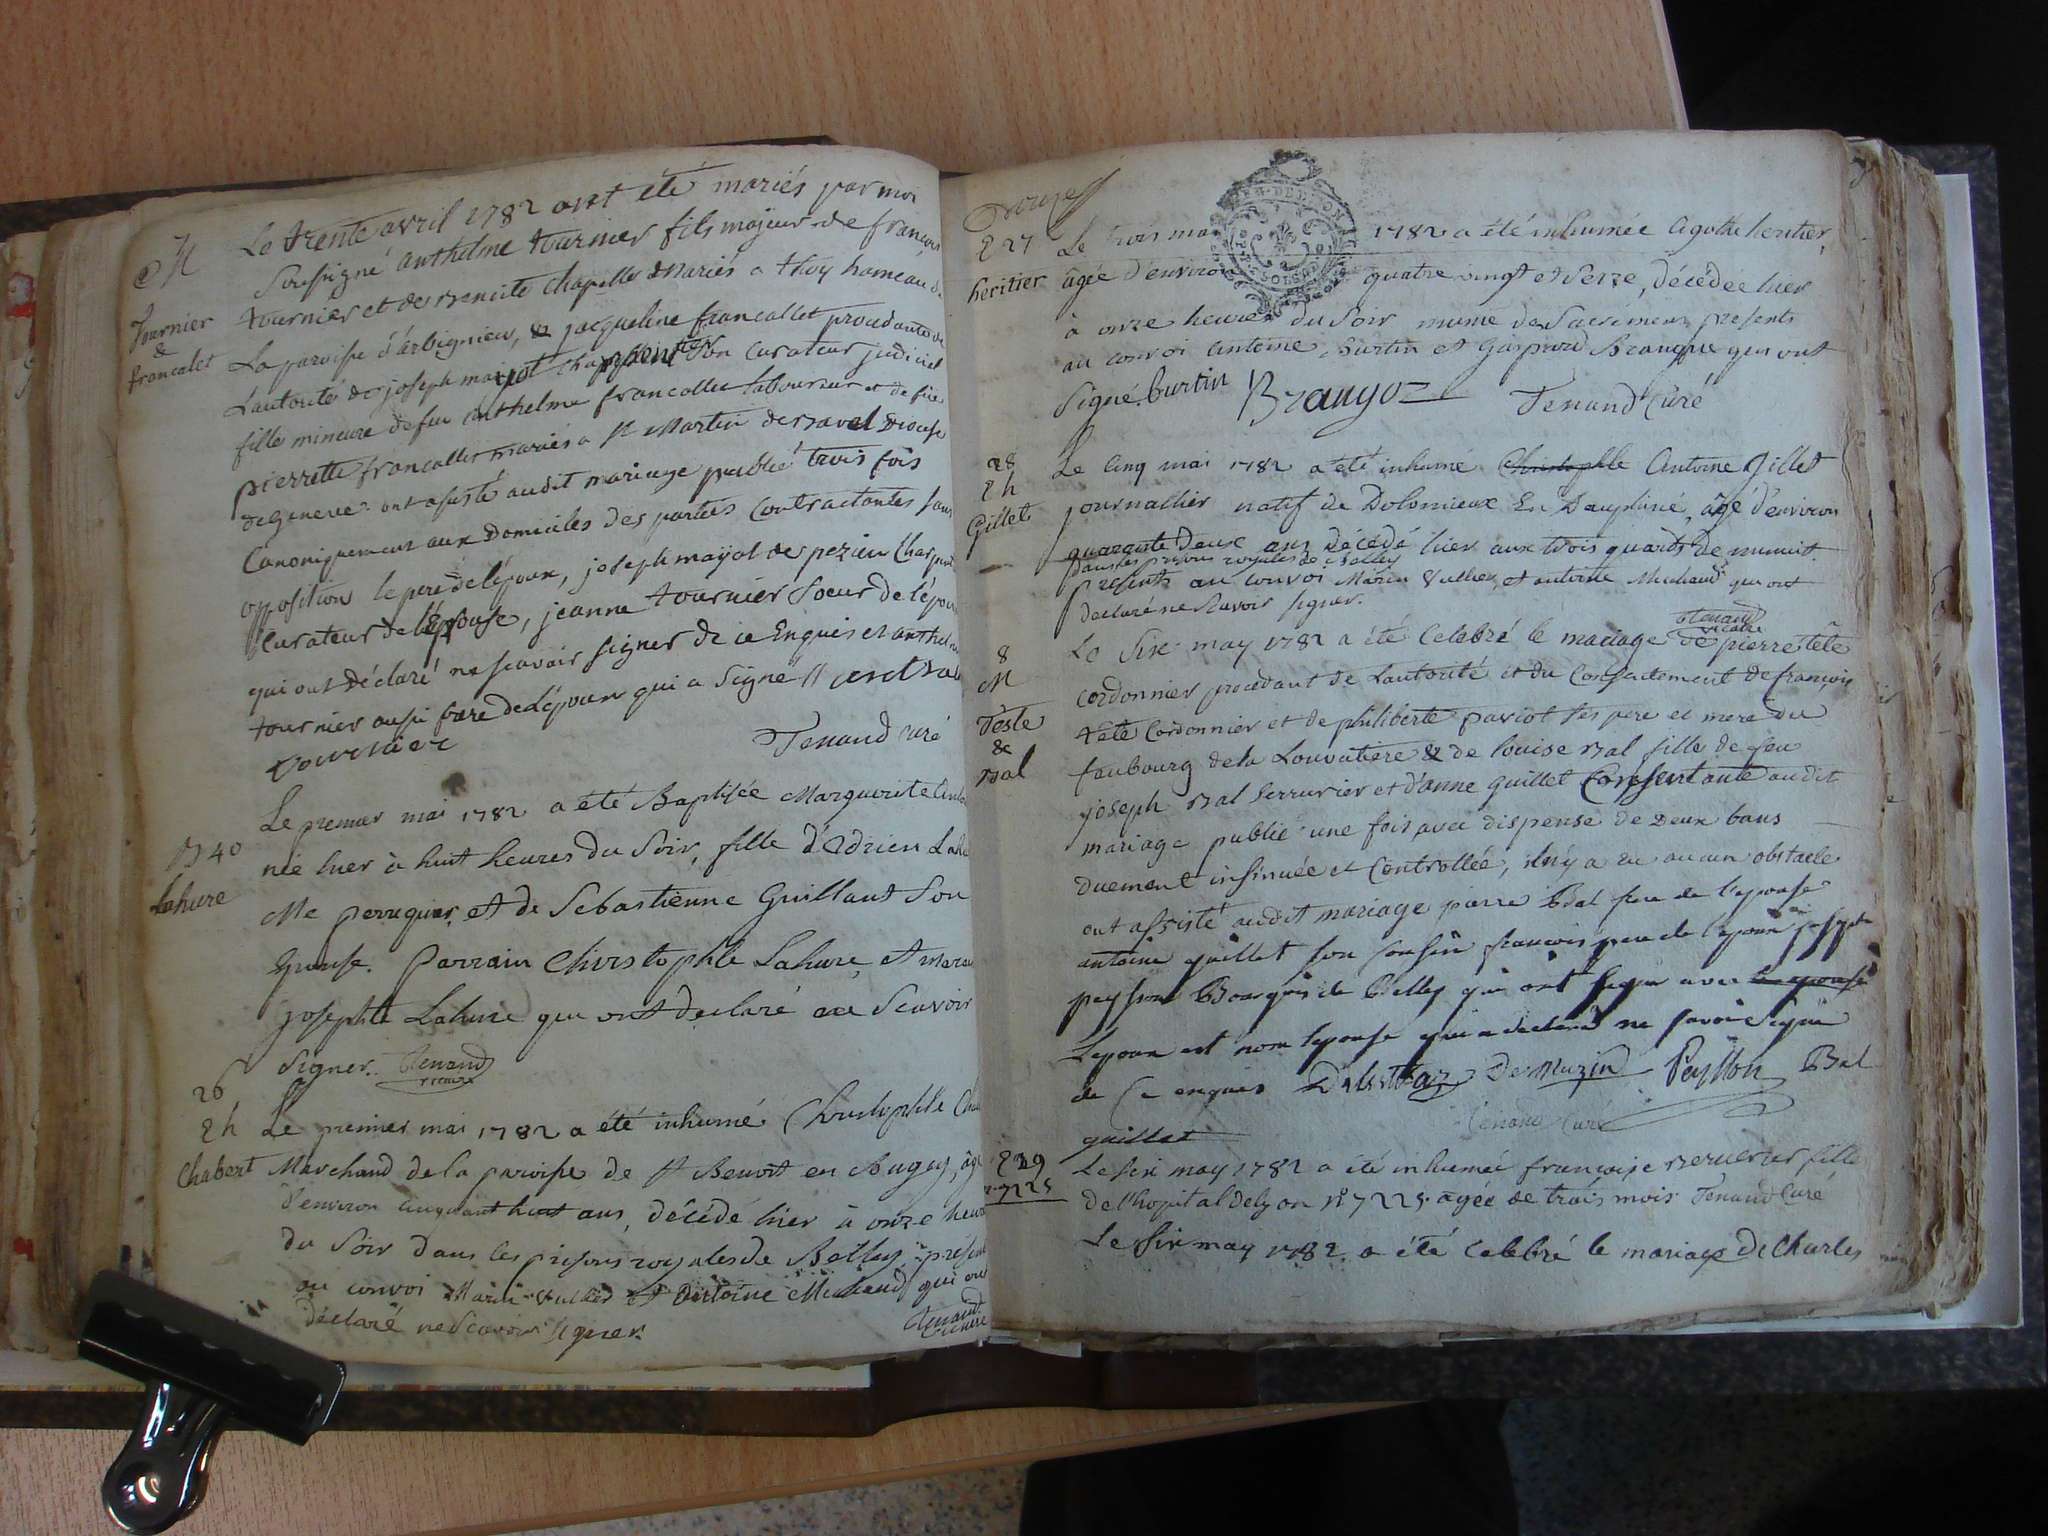 M
Tournier
&
francalet
Le trente avril 1782 ont été mariés par moi
soussigné anthelme tournier fils majeur de francois
tournier et de benoite Chapelle mariés a thoy hameau de
La paroisse d'arbignieu, & jacqueline francallet procedante de
L'autorité de joseph charpent son curateur judiciel
fille mineure de feu anthelme francallet laboureur et de feüe
pierrette francallet mariés a St Martin de bavel Diocese
de Geneve. ont assisté audit mariage publié trois fois
Canoniquement aux Domiciles des parties Contractantes sans
opposition le pere de l'époux, joseph mayot de pezieu
Curateur de l'épouse, jeanne tournier soeur de l'époux
qui ont déclaré ne scavoir signer de ce Enquis et anthelme
tournier aussi frere de L'époux qui a signé
tournier Tenand curé
B 40
Lahure
Le premier mai 1782 a été Baptisée Marguerite
née hier à huit heures du soir, fille d'Adrien
Me perruquier, et de Sebastienne Guillant son
Epouse. Parrain Christophle Lahure, et
Josephte Lahure qui ont declaré ne scavoir
signer. Tenand
vicaire
26
Eh
Chabert
Le premier mai 1782 a été inhumé Christophle
Marchand de la paroisse de St Benoit en Bugey,
d'environ cinquant huit ans, décédé hier à onze
du soir dans les prisons royales de Belley,
au convoi Marin Vullier et Antoine Michaud qui
déclaré ne scavoir signer. Tenand
vicaire
Douze
E 27
heritier
Le trois mai 1782 a été inhumée Agathe heritier,
âgée d'environ quatre vingt et seize, décédée hier
à onze heures du soir munie de sacremens presents
au convoi Antoine burtin et Gaspard Brangue qui ont
signé. burtin Brangoz Tenand Curé
28
Eh
Gillet
Le cinq mai 1782 a été inhumé Christophle Antoine Gillet
journallier natif de Dolomieux En Dauphiné, âgé d'environ
quarante deux ans décédé hier aux trois quarts de minuit
dans les prisons royales de Belley
presents au convoi Marin Vullier, et antoine Michaud qui ont
declaré ne scavoir signer. Tenand
vicaire
8
M
Teste
&
Bal
Le six may 1782 a été celebré le mariage de pierre tête
cordonnier procedant de L'autorité et du Consentement de françois
tête Cordonnier et de philiberte paviot ses pere et mere du
faubourg de la Louvatiere & de louise Bal fille de feu
joseph Bal serrurier et d'anne guillet Consentante audit
mariage publié une fois avec dispense de Deux bans
duement insinuée et controllée, il n'y a eu aucun obstacle
ont assisté audit mariage pierre Bal frere de l'epouse
antoine guillet son cousin françois pere de l'epoux joseph
peysson Bourgeois de Belley qui ont signé avec le epouse
L'epoux est non lepouse qui a declaré ne savoir signer
de Ce enquis De Muzin Peysson Bal
guillet Tenand Curé
E 29
n. 7225
Le six may 1782 a été inhumée françoise fille
de l'hopital de lyon n° 7225. agée de trois mois Tenand Curé
Le six may 1782. a été celebré le mariage De Charles